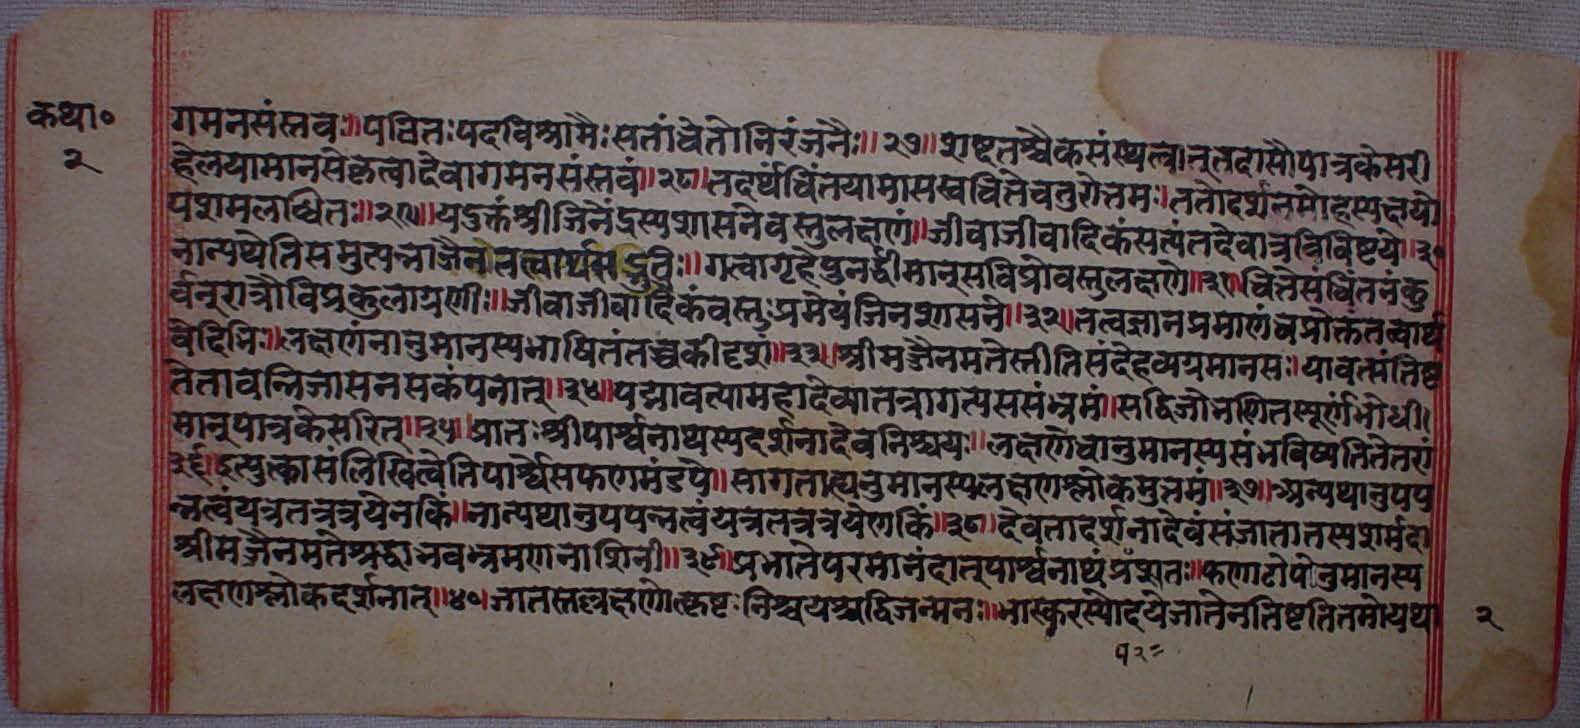 कथा०
२
गमनसंस्तवः॥पठितःपदविश्रामैःसतांचेतोनिरंजनैः॥२७॥शष्टतश्चैकसंस्थत्वात्तदासौपात्रकेसरी
हेलयामानसेकृत्वादेवागमनसंस्तवं॥२८॥तदर्थंचिंतयामासस्वचित्तेचतुरोत्तमः।ततोदर्शनमोहस्यक्षयो
पशमलब्धितः॥२९॥यदुक्तंश्रीजिनेंद्रस्यशासनेवस्तुलक्षणं॥जीवाजीवादिकंसत्यंतदेवात्रविविष्टये॥३०
नान्यथेतिसमुत्पन्नाजैनतत्वार्थसद्रुचिः॥गत्वागृहेपुनर्द्धीमान्सविप्रोवस्तुलक्षणे॥३१॥चित्तेसंचिंतनंकु
र्वन्रात्रौविप्रकुलाग्रणीः॥जीवाजीवादिकंवस्तुःप्रमेयंजिनशासने॥३२॥तत्वज्ञानप्रमाणंचप्रोक्तंतत्वार्थ
वेदिभिः॥लक्षणंनानुमानस्यभाषितंतच्चकीदृशं॥३३॥श्रीमज्जैनमतेस्तीतिसंदेहव्यग्रमानसः॥यावत्संतिष्ट
तेतावन्निजासनसकंपनात्॥३४॥पद्मावत्यामहादेव्यातत्रागत्यससंभ्रमं॥सद्विजोभणितस्तूर्णंभोधी।
मान्पात्रकेसरिन्॥३५॥प्रातःश्रीपार्श्वनाथस्यदर्शनादेवनिश्चयः॥लक्षणेचानुमानस्यसंभविष्यतितेतरां
३६॥इत्युत्कासंलिखित्वेतिपार्श्वेसफणमंडपे॥सागतात्यनुमानस्यलक्षणश्लोकमुत्तमं॥३७॥अन्यथानुपप
न्नत्वंयत्रतत्रत्रयेनकिं॥नान्यथानुपपन्नत्वंयत्रतत्रत्रयेणकिं॥३८॥देवतादर्शनादेवंसंजातातस्यशर्मदा
श्रीमज्जैनमतेश्रद्धाभवभ्रमणनाशिनी॥३९॥प्रभातेपरमानंदात्पार्श्वनाथंप्रपश्यतः॥फणाटोपेनुमानस्य
लक्षणश्लोकदर्शनात्॥४०॥जातस्तल्लक्षणोत्कृष्टःनिश्चयश्चद्विजन्मनः॥भास्करस्योदयेजातेनतिष्टतितमोयथा
२
१२=